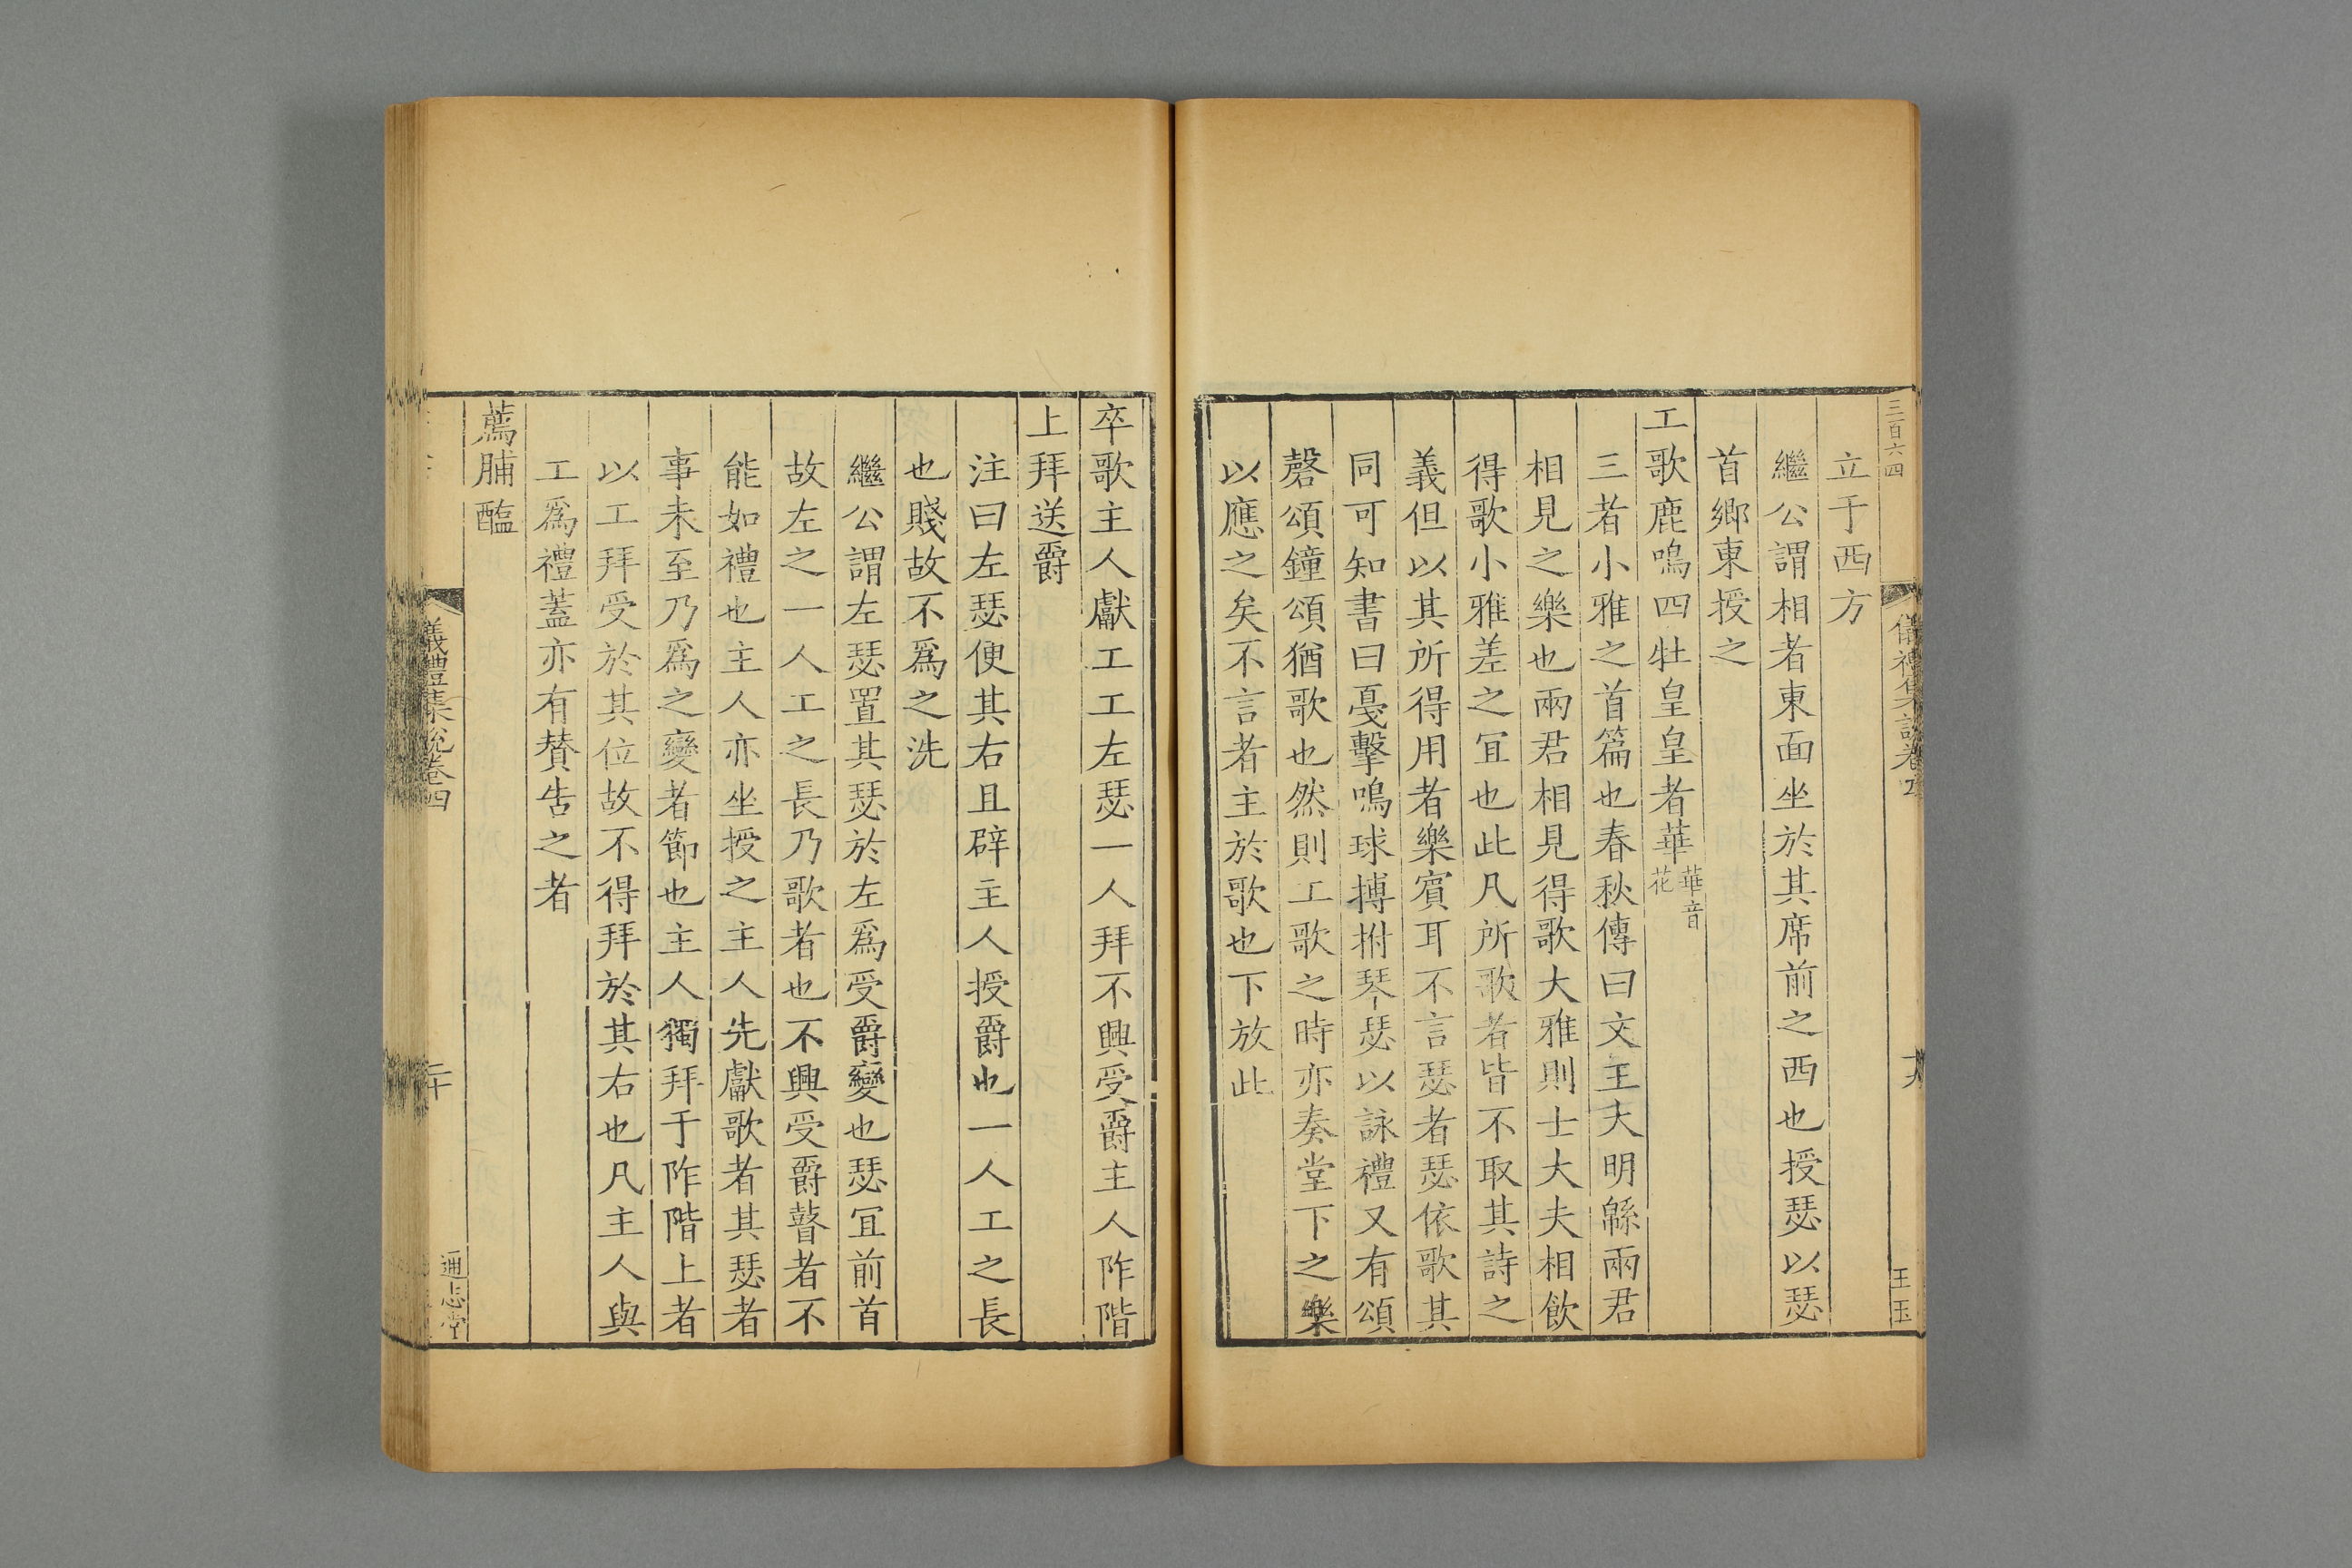 三百六四
儀禮集說卷四
王玉
立于西方
繼公謂相者東面坐於其席前之西也授瑟以瑟
首鄉東授之
工歌鹿鳴四牡皇皇者華華音花
三者小雅之首篇也春秋傳曰文王大明緜兩君
相見之樂也兩君相見得歌大雅則士大夫相飲
得歌小雅差之宜也此凡所歌者皆不取其詩之
義但以其所得用者樂賓耳不言瑟者瑟依歌其
同可知書曰戛擊鳴球搏拊琴瑟以詠禮又有頌
磬頌鐘頌猶歌也然則工歌之時亦奏堂下之樂
以應之矣不言者主於歌也下放此
卒歌主人獻工工左瑟一人拜不興受爵主人阼階
上拜送爵
注曰左瑟便其右且辟主人授爵也一人工之長
也賤故不爲之洗
繼公謂左瑟置其瑟於左爲受爵變也瑟宜前首
故左之一人工之長乃歌者也不興受爵瞽者不
能如禮也主人亦坐授之主人先獻歌者其瑟者
事未至乃爲之變者節也主人獨拜于阼階上者
以工拜受於其位故不得拜於其右也凡主人與
工爲禮蓋亦有贊告之者
薦脯醢
儀禮集說卷四
二十
通志堂